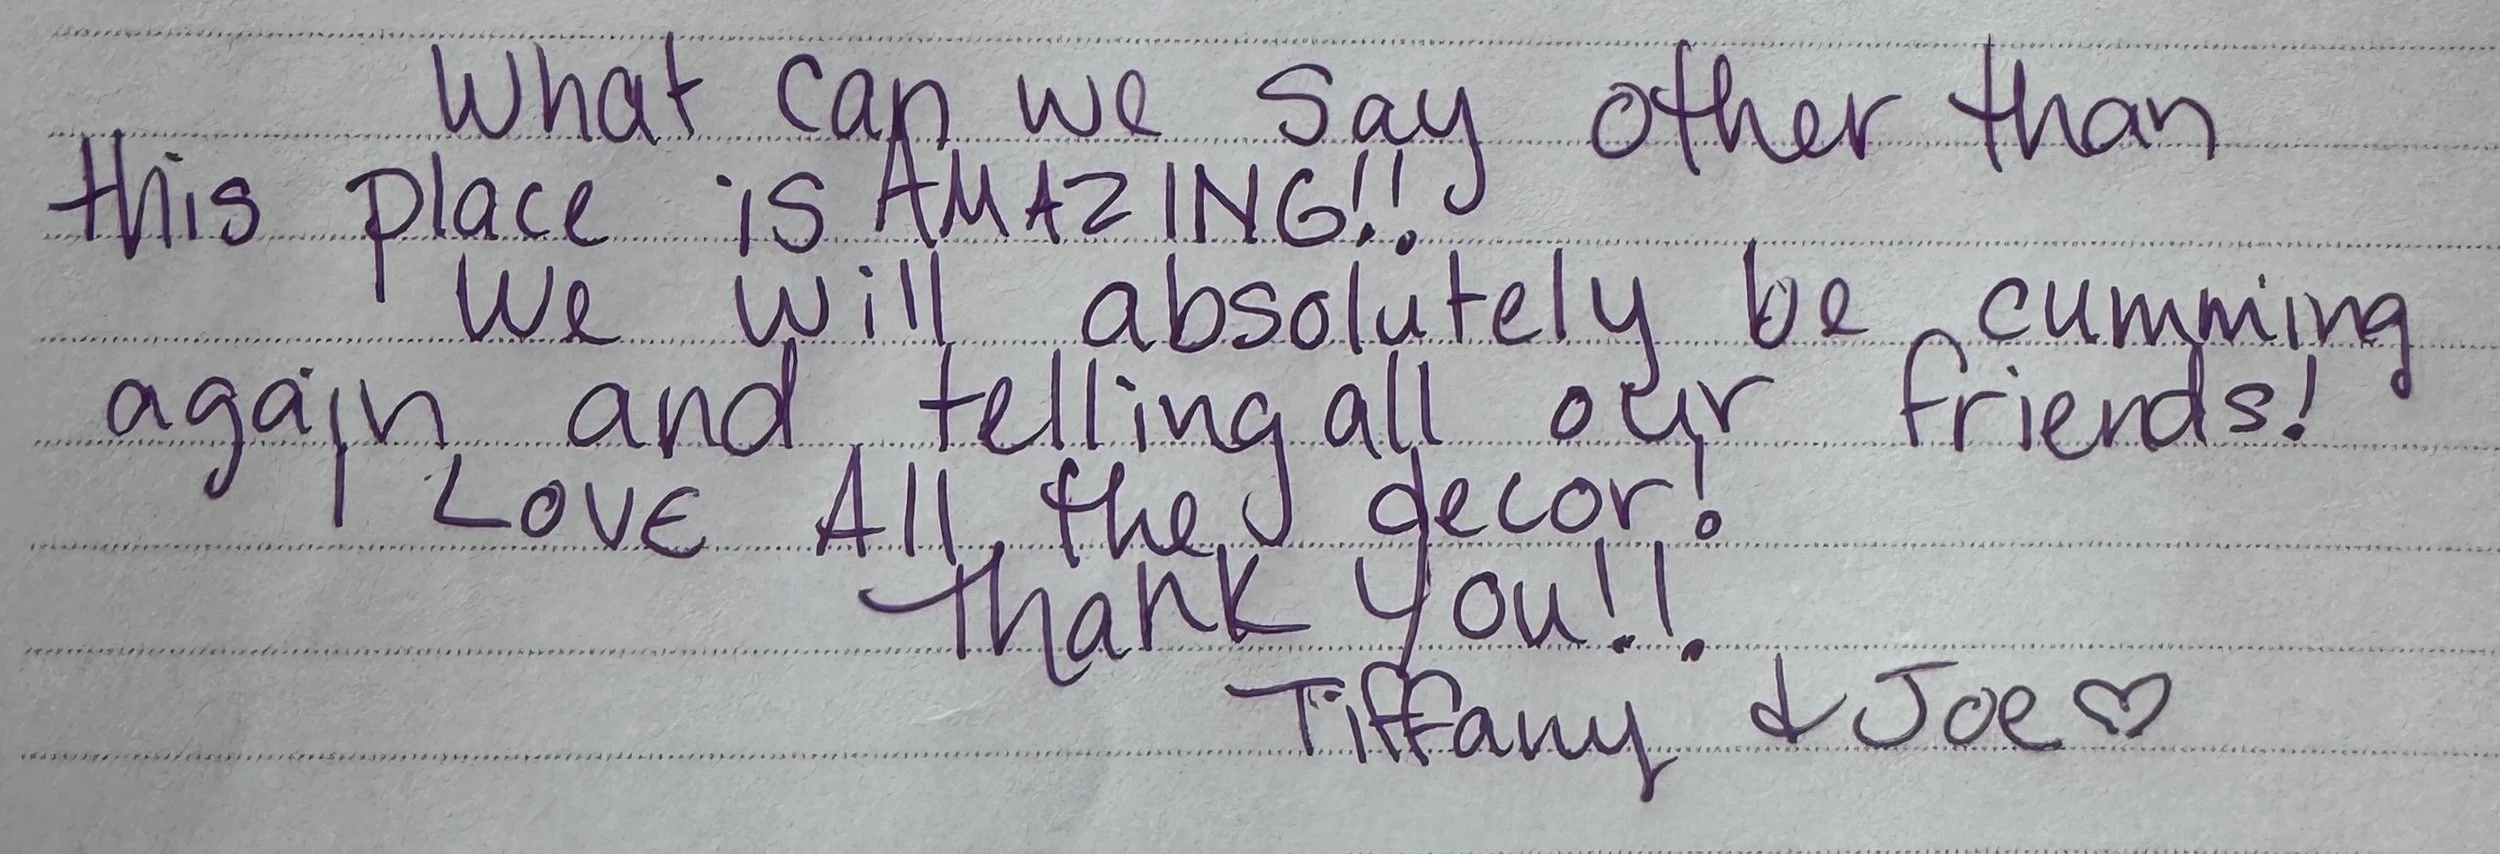 What can we say other than
this place is AMAZING!!
We will absolutely be cumming
again and telling all our friends!
Love All the decor!
Thank you!!
Tiffany & Joe ♡